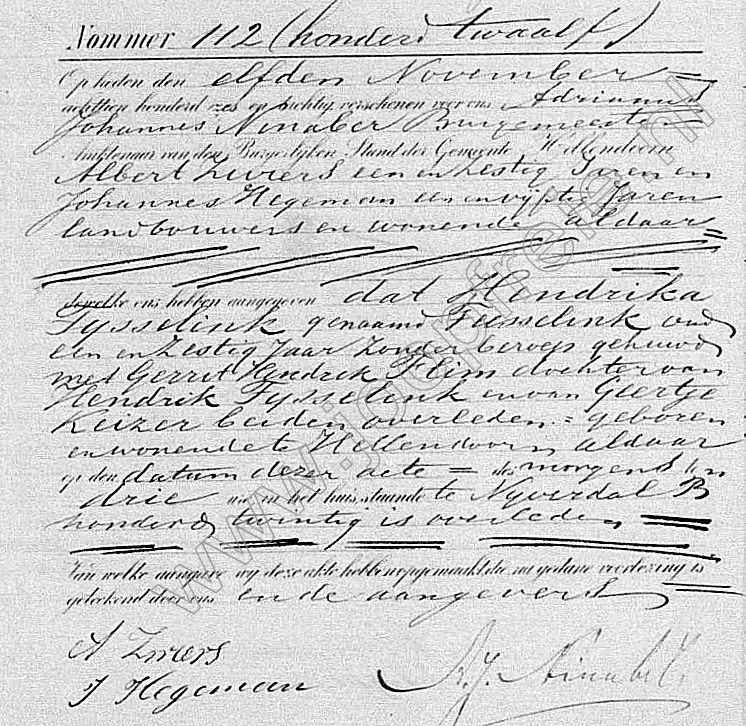 Nommer 112 (honderd twaalf)
Op heden den elfden November =
achttien honderd zes en tachtig, verschenen voor ons Adrianus
Johannes Ninaber Burgemeester
Ambtenaar van den Burgerlijken Stand der Gemeente Hellendoorn
Albert Zwiers een en zestig Jaren en
Johannes Hegeman een en vijftig Jaren
landbouwers en wonende aldaar =
dewelke ons hebben aangegeven dat Hendrika
Fysselink genaamd Fusselink oud
een en zestig Jaar zonder beroep gehuwd
met Gerrit Hendrik Flim dochter van
Hendrik Fysselink en van Geertje
Keizer beiden overleden = geboren
en wonende te Hellendoorn aldaar
op den datum dezer acte = des morgens ten
drie ure, in het huis, staande te Nyverdal B
honderd twintig is overleden
Van welke aangifte wij deze akte hebben opgemaakt, die na gedane voorlezing is
geteekend door ons en de aangevers
A Zwiers
J Hegeman
A. J. Ninaber